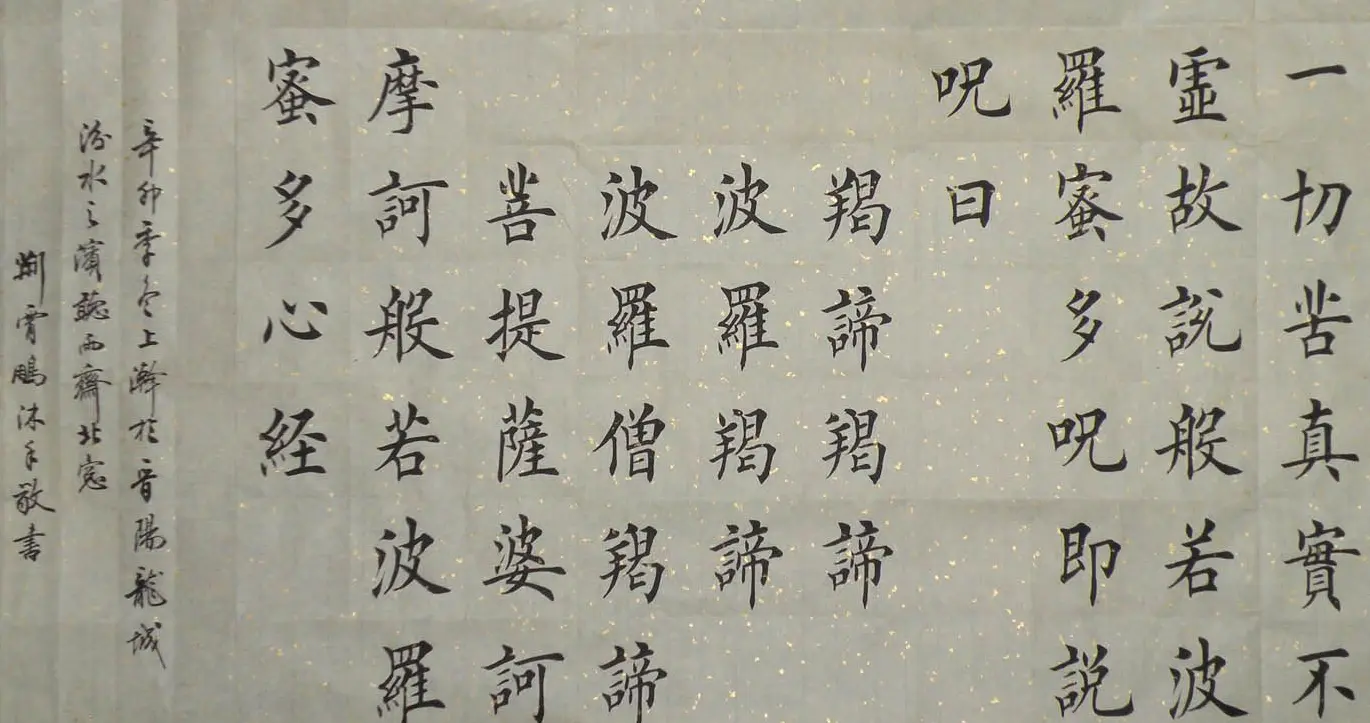 一切苦真實不
虛故說般若波
羅蜜多呪即説
呪曰
羯諦羯諦
波羅羯諦
波羅僧羯諦
菩提薩婆訶
摩訶般若波羅
蜜多心経
辛卯季冬上澣於晋陽龍城
汾水之濱聽雨齋北窓
荆霄鵬沐手敬書